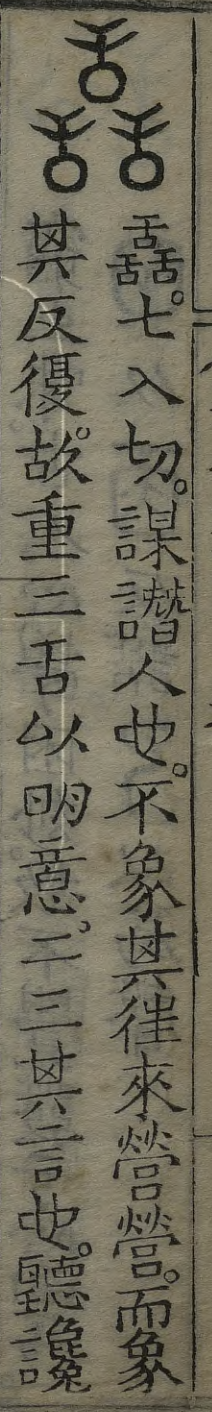 舙。七入切。謀譖人也。不象其往來營營。而象
其反復。故重三舌以明意。二三其言也。聽讒